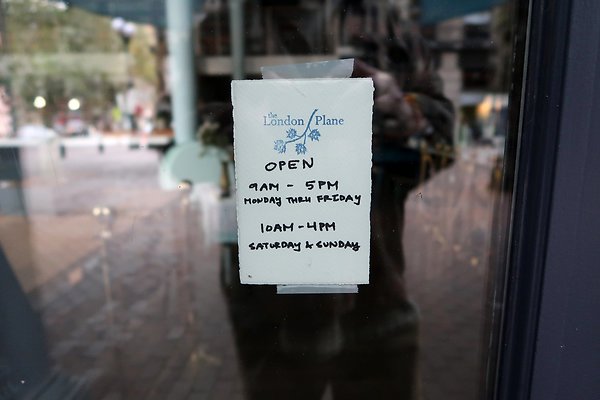 the
London Plane
OPEN
9AM - 5PM
MONDAY THRU FRIDAY
10AM - 4PM
SATURDAY & SUNDAY